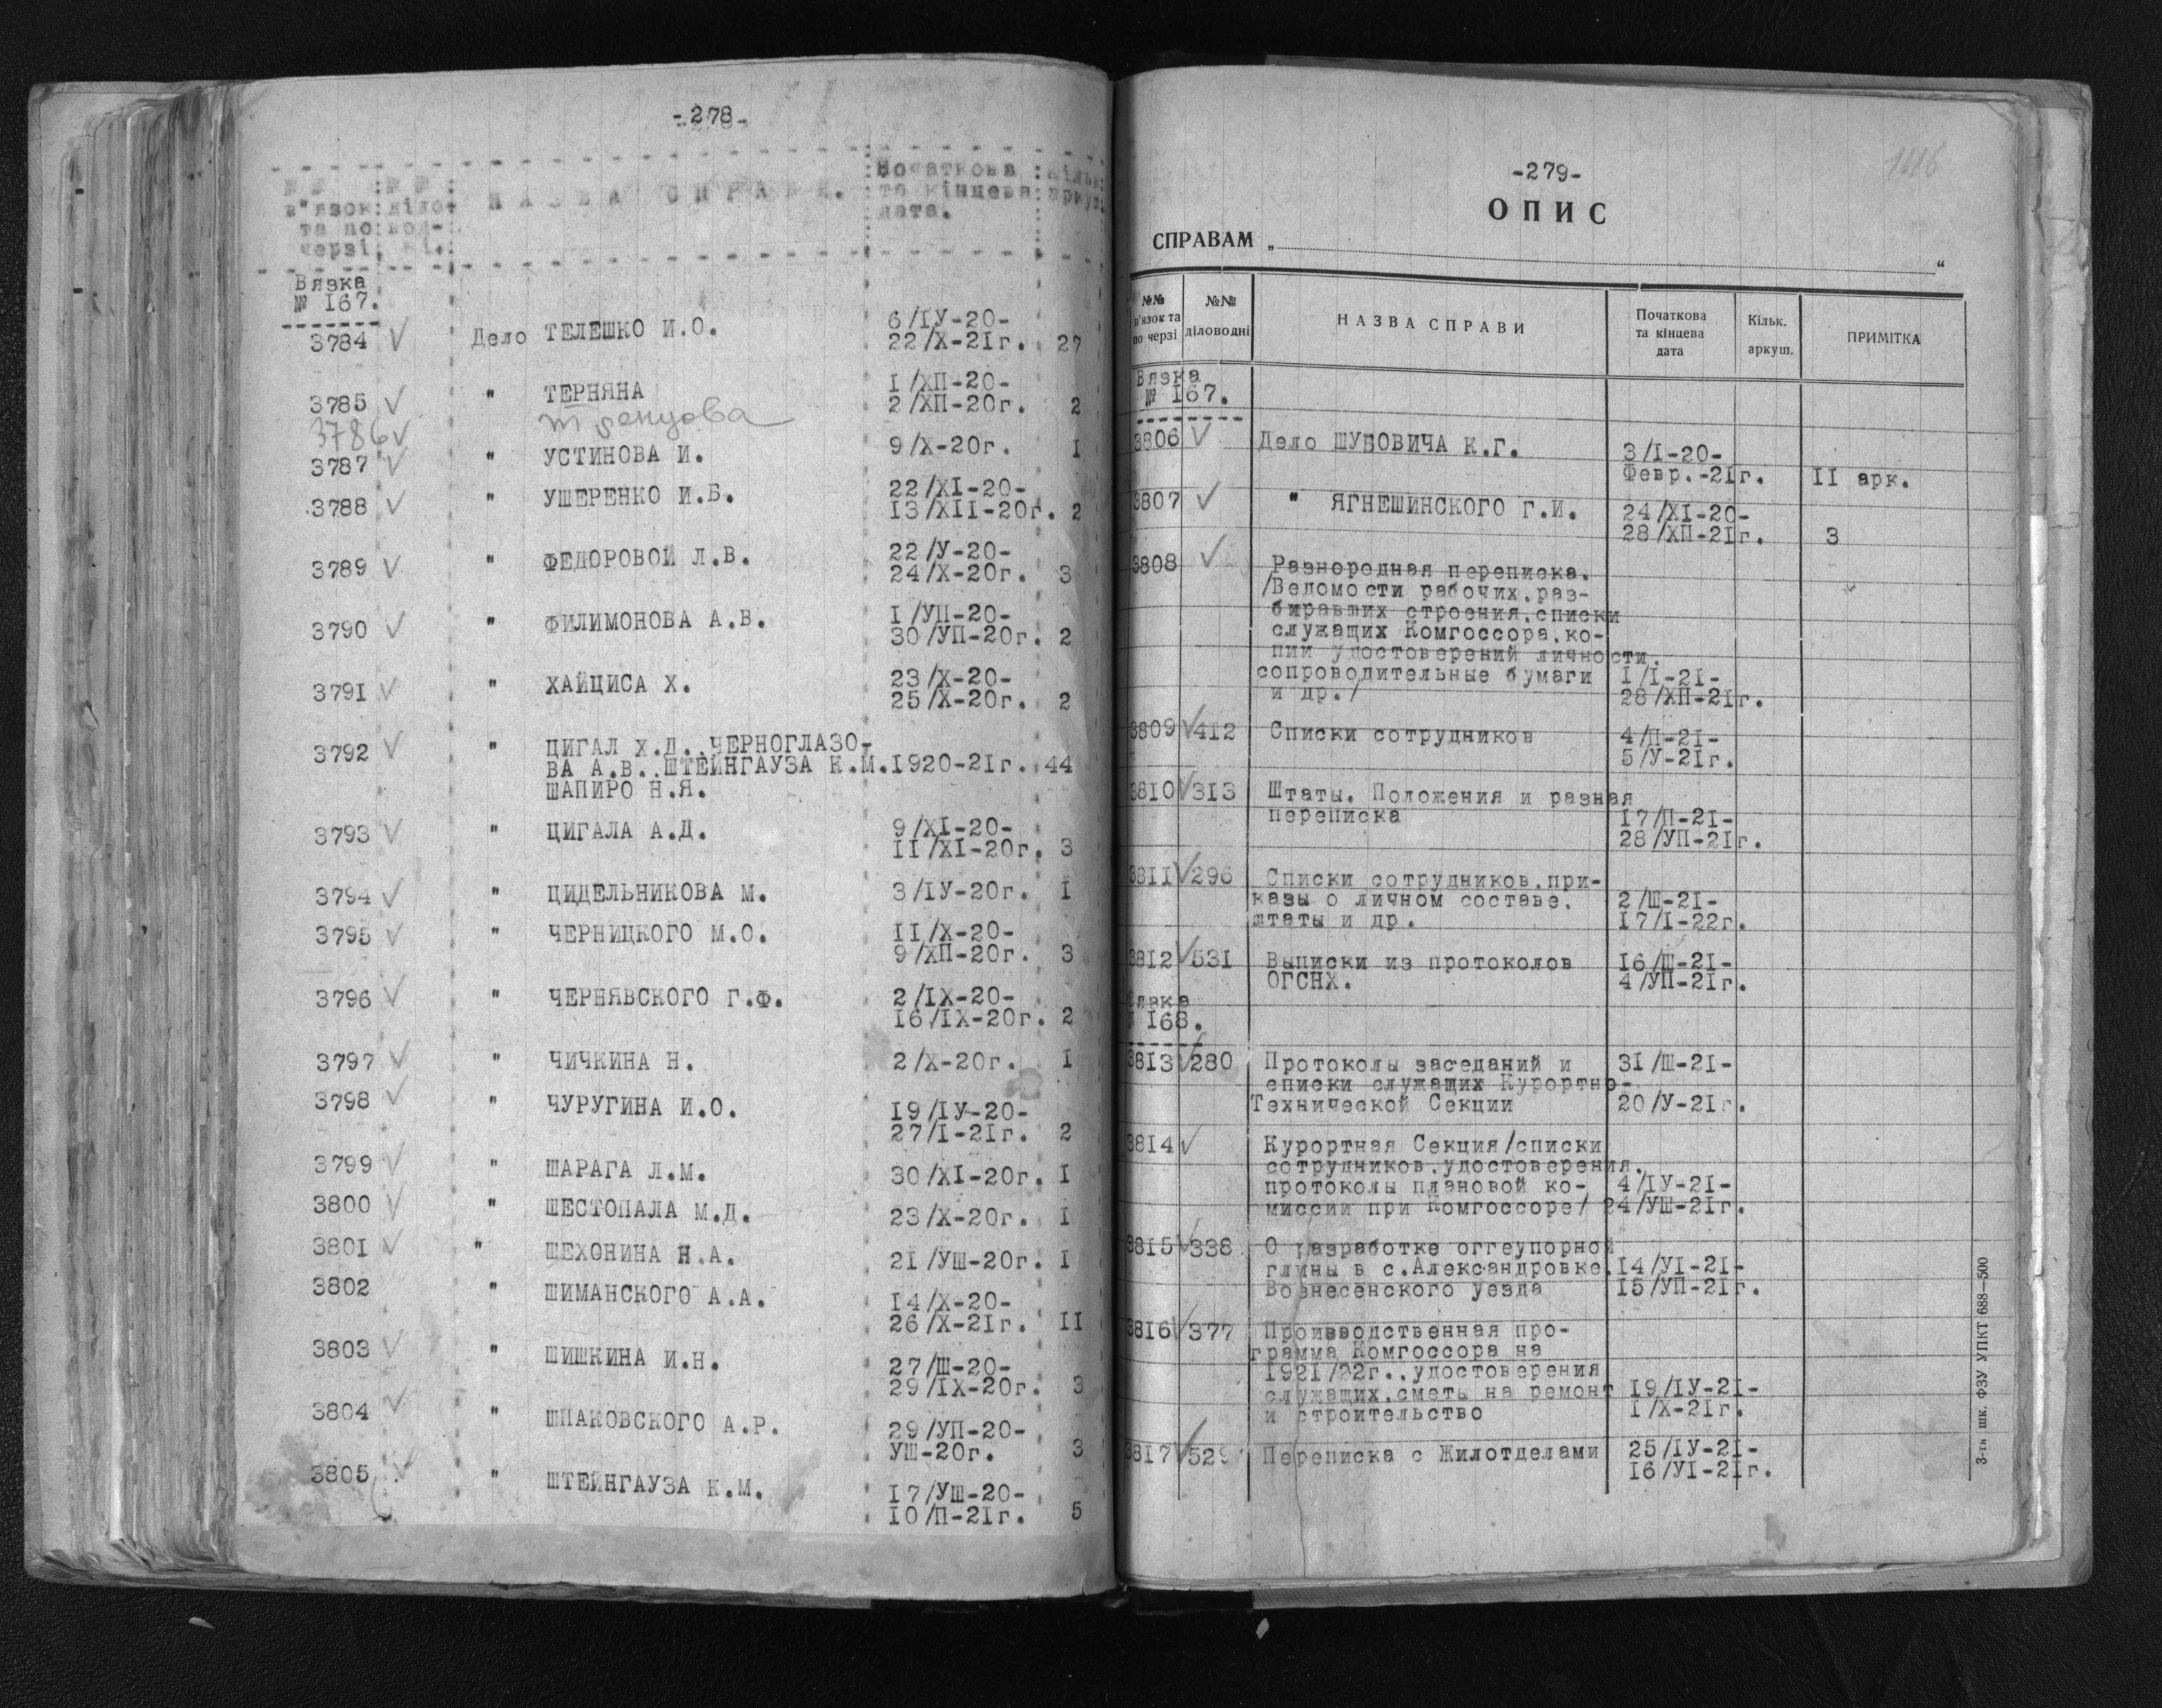 -278-
№ № : № № : Початкова : Кільк.
в"язок: діло- НАЗВА СПРАВИ. та кінцева: аркуш.
та по: вод- дата.
черзі. ні.
Вязка
№ 167.
3784 √ Дело ТЕЛЕШКО И.О. 6/ІУ-20-
22/Х-21г. 27
3785 √ " ТЕРНЯНА 1/ХП-20-
2/ХП-20г. 2
3786 √
3787 √ " УСТИНОВА И. 9/Х-20г. I
3788 √ " УШЕРЕНКО И.Б. 22/ХI-20-
I3/ХII-20г. 2
3789 √ " ФЕДОРОВОЙ Л.В. 22/У-20-
24/Х-20г. 3
3790 √ " ФИЛИМОНОВА А.В. I/УП-20-
30/УП-20г. 2
3791 √ " ХАЙЦИСА Х. 23/Х-20-
25/Х-20г. 2
3792 √ " ЦИГАЛ Х.Д., ЧЕРНОГЛАЗО-
ВА А.В., ШТЕЙНГАУЗА К.М. 1920-21г. 44
ШАПИРО Н.Я.
3793 √ " ЦИГАЛА А.Д. 9/ХI-20-
II/ХI-20г. 3
3794 √ " ЦИДЕЛЬНИКОВА М. 3/IУ-20г. I
3795 √ " ЧЕРНИЦКОГО М.О. II/Х-20-
9/ХП-20г. 3
3796 √ " ЧЕРНЯВСКОГО Г.Ф. 2/IХ-20-
I6/IХ-20г. 2
3797 √ " ЧИЧКИНА Н. 2/Х-20г. I
3798 √ " ЧУРУГИНА И.О. I9/IУ-20-
27/I-21г. 2
3799 √ " ШАРАГА Л.М. 30/ХI-20г. I
3800 √ " ШЕСТОПАЛА М.Д. 23/Х-20г. I
3801 √ " ШЕХОНИНА Н.А. 21/УШ-20г. I
3802 " ШИМАНСКОГО А.А. I4/Х-20-
26/Х-21г. II
3803 √ " ШИШКИНА И.Н. 27/Ш-20-
29/IХ-20г. 3
3804 √ " ШПАКОВСКОГО А.Р. 29/УП-20-
УШ-20г. 3
3805 √ " ШТЕЙНГАУЗА К.М. I7/УШ-20-
I0/П-21г. 5
-279-
ОПИС
СПРАВАМ „ “
№№ в'язок та по черзі
№№ діловодні
НАЗВА СПРАВИ
Початкова та кінцева дата
Кільк. аркуш.
ПРИМІТКА
Вязка
№ 167.
3806 √ Дело ШУБОВИЧА К.Г. 3/I-20-
Февр.-21г. II арк.
3807 √ " ЯГНЕШИНСКОГО Г.И. 24/ХI-20-
28/ХП-21г. 3
3808 √ Разнородная переписка.
/Ведомости рабочих, раз-
биравших строения, списки
служащих Комгоссора, ко-
пии удостоверений личности,
сопроводительные бумаги I/I-21-
и др./ 28/ХП-21г.
3809 √ 412 Списки сотрудников 4/П-21-
5/У-21г.
3810 √ 313 Штаты. Положения и разная
переписка I7/П-21-
28/УП-21г.
3811 √ 296 Списки сотрудников, при-
казы о личном составе, 2/Ш-21-
штаты и др. I7/I-22г.
3812 √ 531 Выписки из протоколов I6/Ш-21-
ОГСНХ. 4/УП-21г.
Вязка
№ 168.
3813 √ 280 Протоколы заседаний и 31/Ш-21-
списки служащих Курортно-
Технической Секции 20/У-21г.
3814 √ Курортная Секция/списки
сотрудников, удостоверения,
протоколы плановой ко- 4/IУ-21-
миссии при Комгоссоре/ 24/УШ-21г.
3815 √ 338 О разработке оггеупорной
глины в с.Александровке, I4/УI-21-
Вознесенского уезда I5/УП-21г.
3816 √ 377 Производственная про-
грамма Комгоссора на
1921/22г., удостоверения
служащих, сметы на ремонт I9/IУ-21-
и строительство I/Х-21г.
3817 √ 529 Переписка с Жилотделами 25/IУ-21-
I6/УI-21г.
3-тя шк. ФЗУ УПКТ 688—500